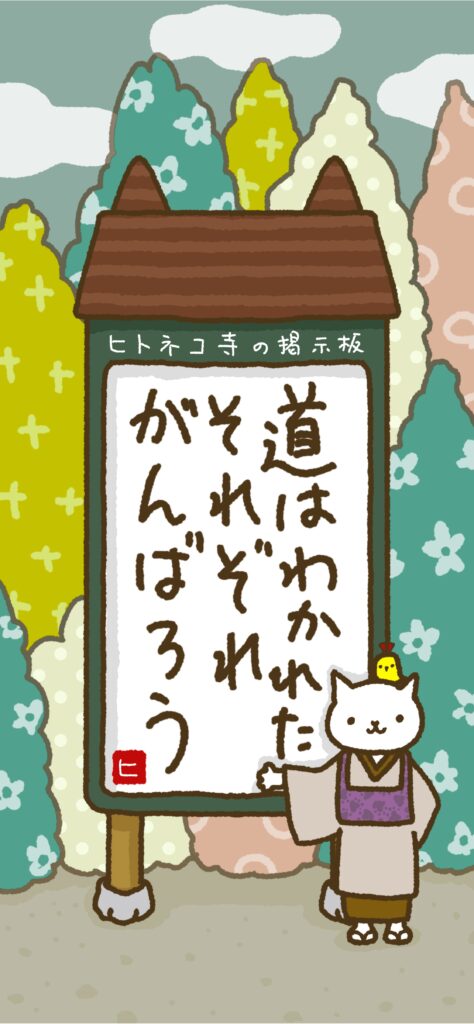 ヒトネコ寺の掲示板
道はわかれた
それぞれ
がんばろう
ヒ